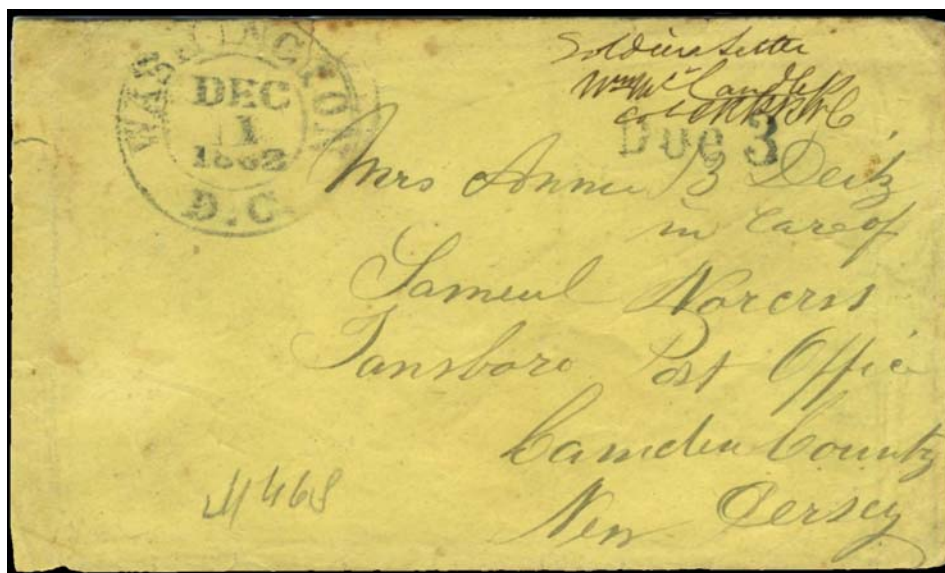 WASHINGTON
DEC
1
1862
D.C.
Soldiers Letter
Wm McCandless
Col
Due 3
Mrs Annie B Deitz
in care of
Sameul Norcrss
Tansboro Post Offic
Camden County
New Jersey